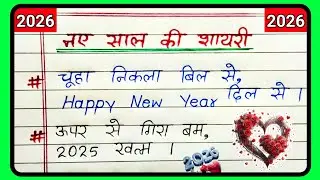 2026 2026
नए साल की शायरी
# चूहा निकला बिल से,
Happy New Year दिल से ।
# ऊपर से गिरा बम,
2025 खत्म ।
2026